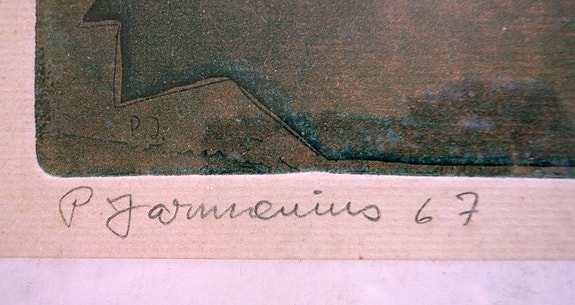 P.J.
P Jarmaenius 67